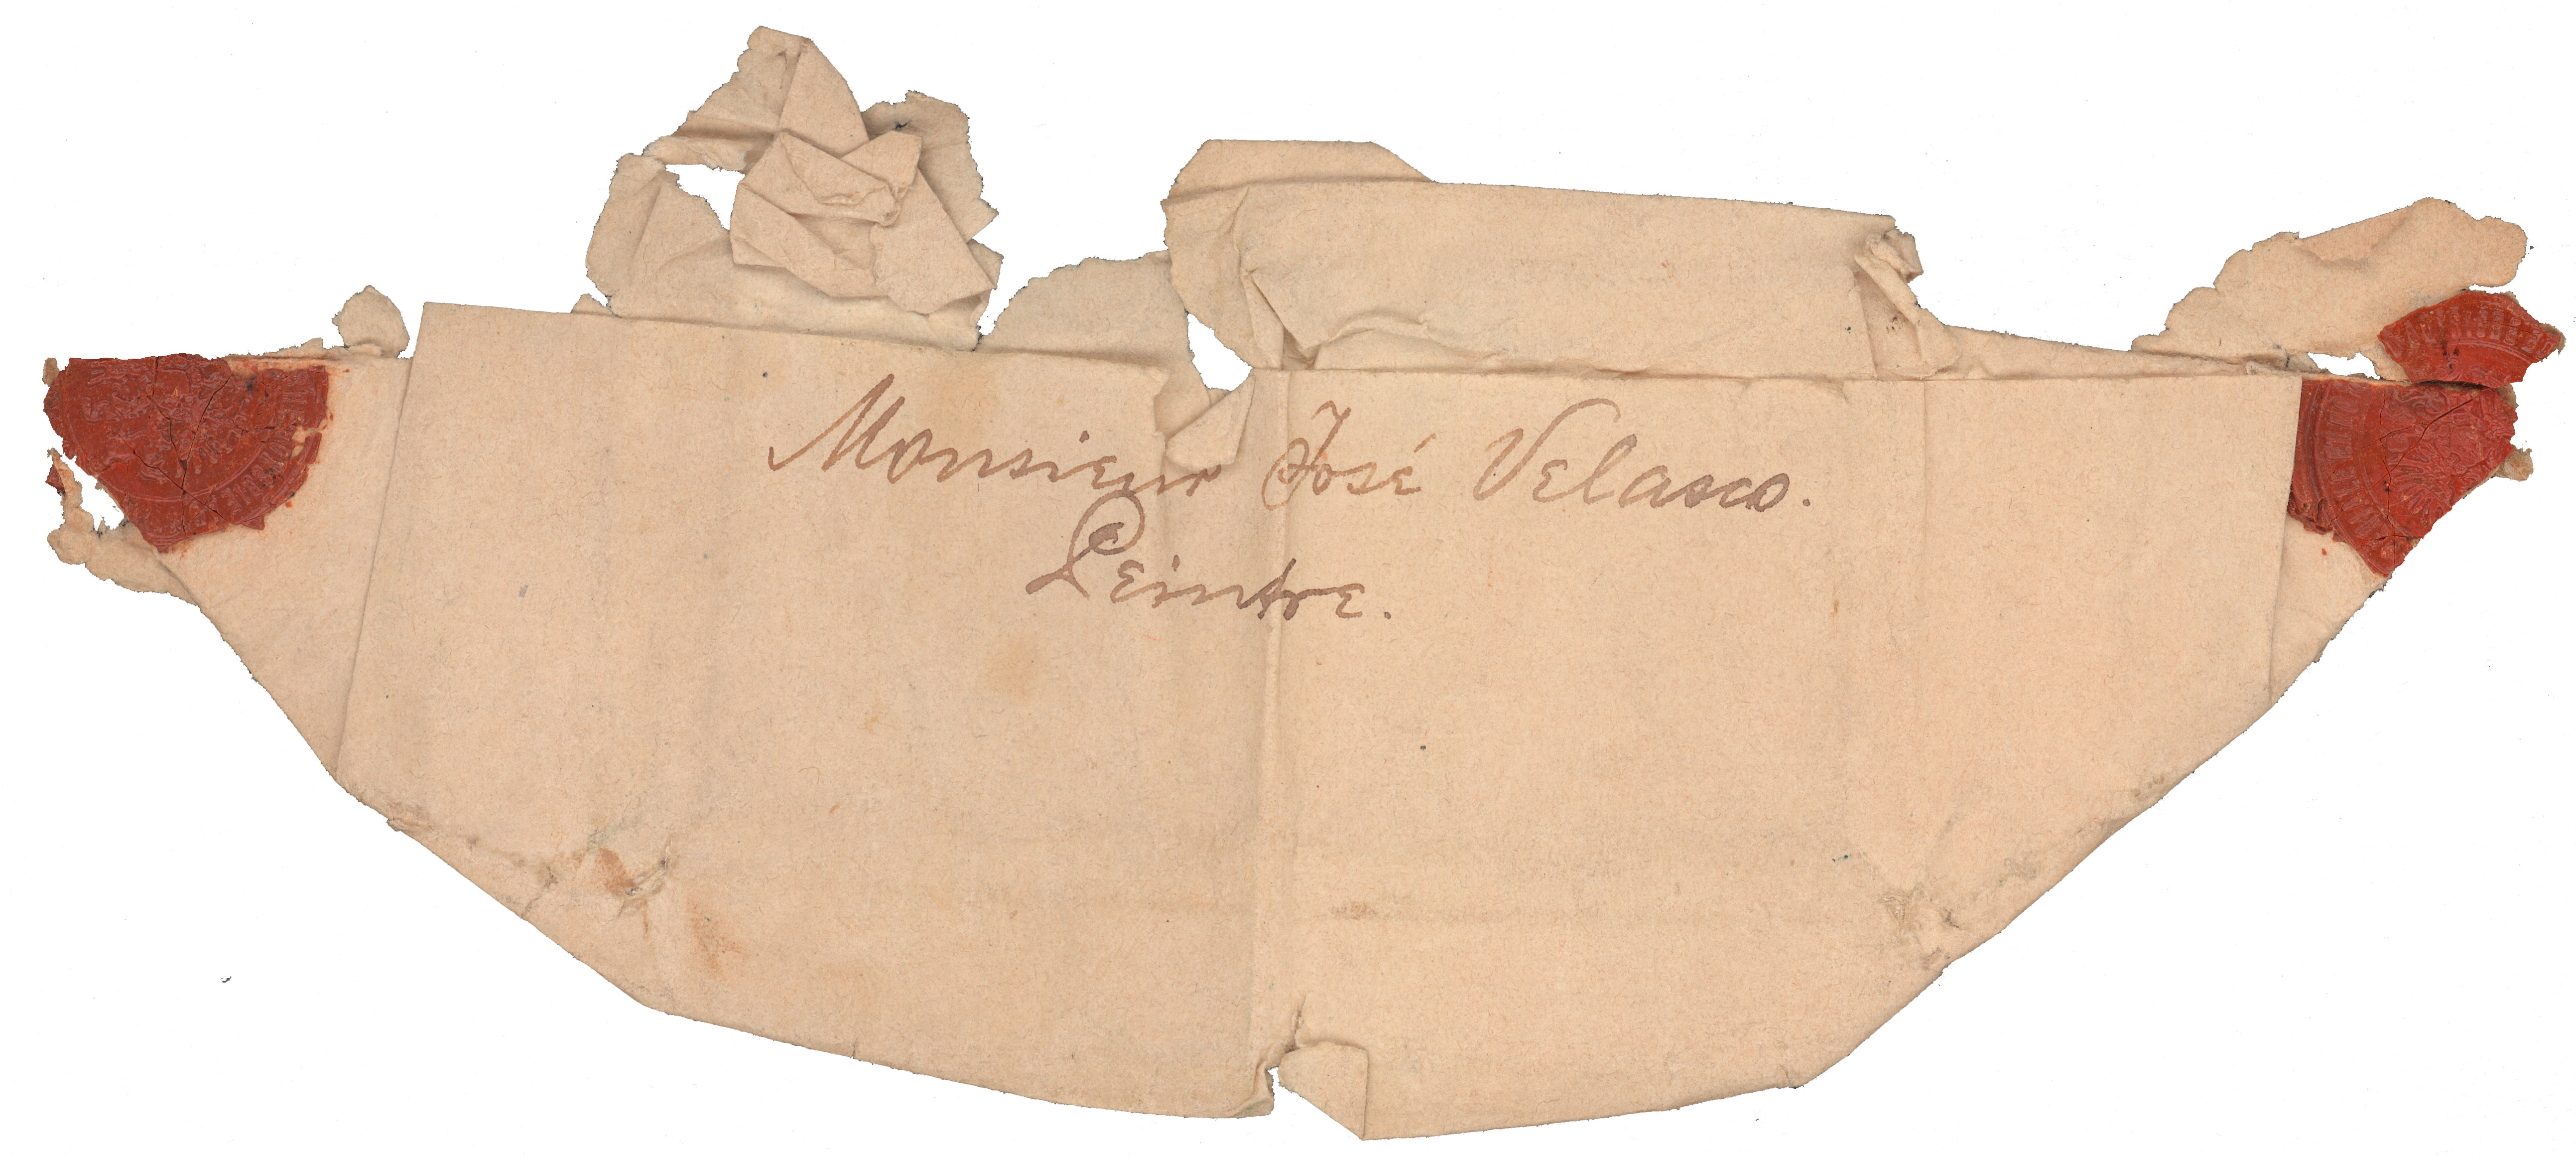 Monsieur José Velasco.
Peintre.